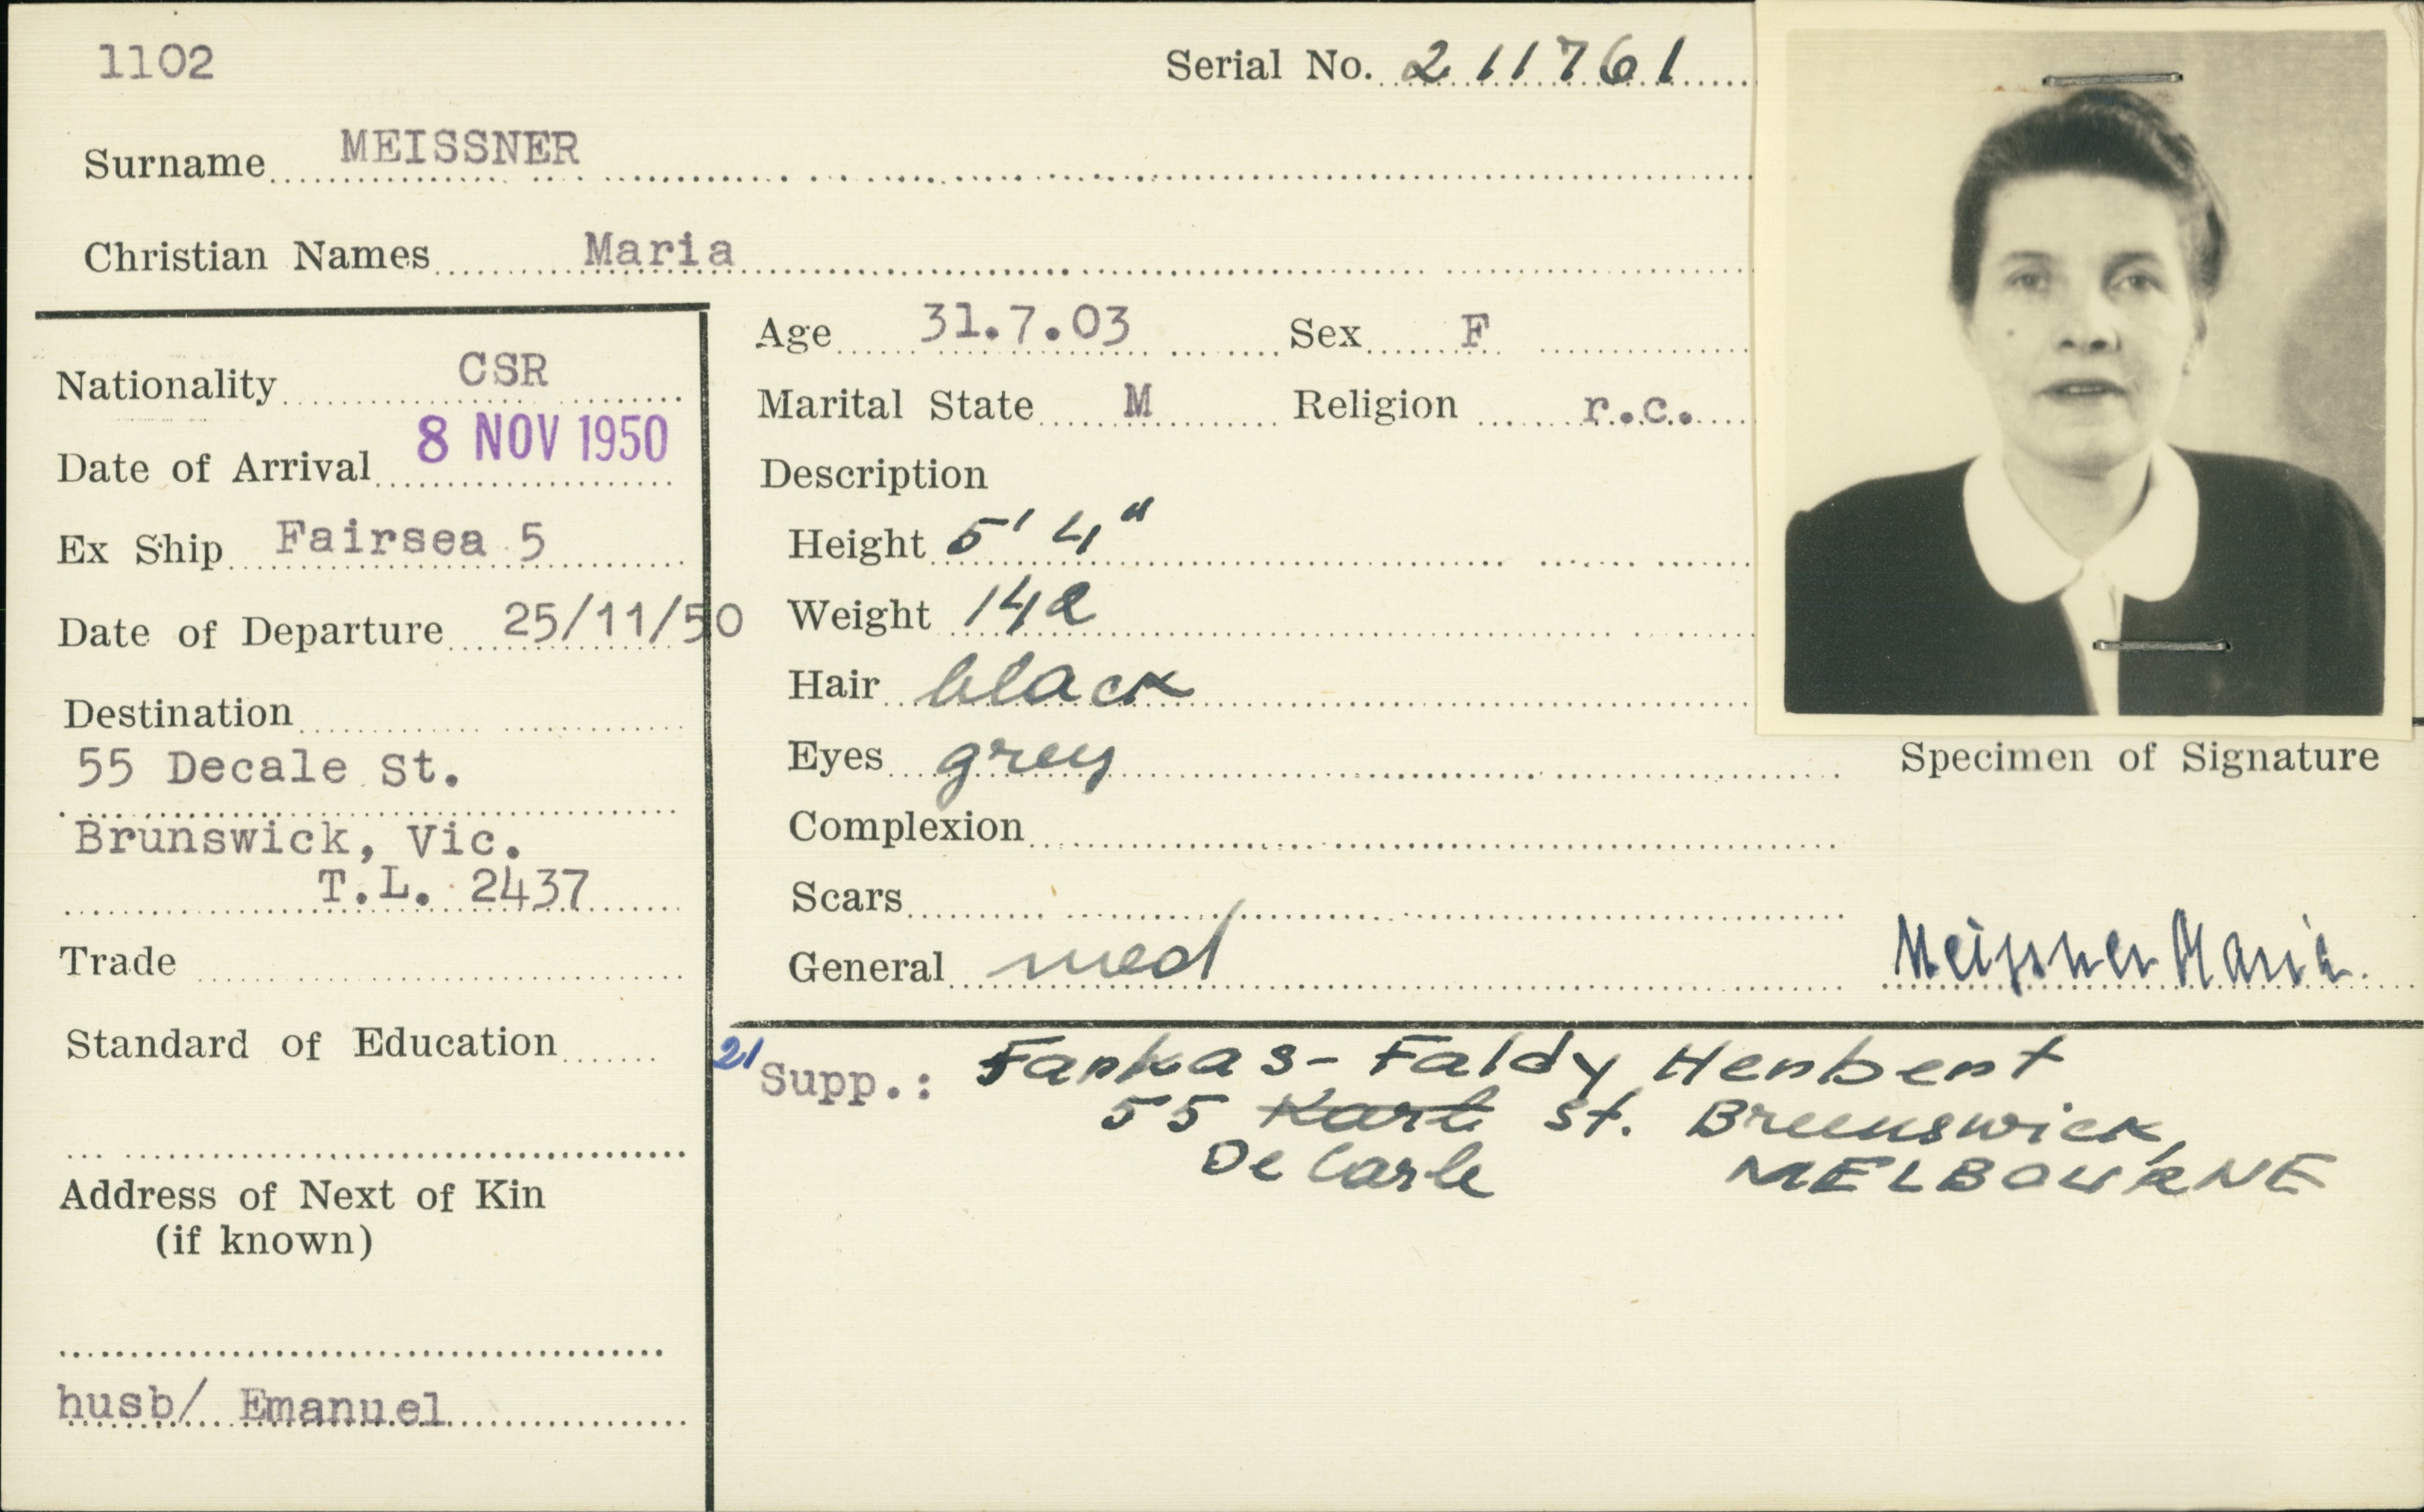 1102
Serial No. 211761
Surname MEISSNER
Christian Names Maria
Nationality CSR
Date of Arrival 8 NOV 1950
Ex Ship Fairsea 5
Date of Departure 25/11/50
Destination
55 Decale St.
Brunswick, Vic.
T.L. 2437
Trade
Standard of Education
Address of Next of Kin
(if known)
husb/ Emanuel
Age 31.7.03 Sex F
Marital State M Religion r.c.
Description
Height 5' 4"
Weight 142
Hair black
Eyes grey
Complexion
Scars
General med
Specimen of Signature
Meissner Maria.
21 Supp.: Farkas-Faldy Herbert
55 Karl St. Brunswick,
De Carle MELBOURNE